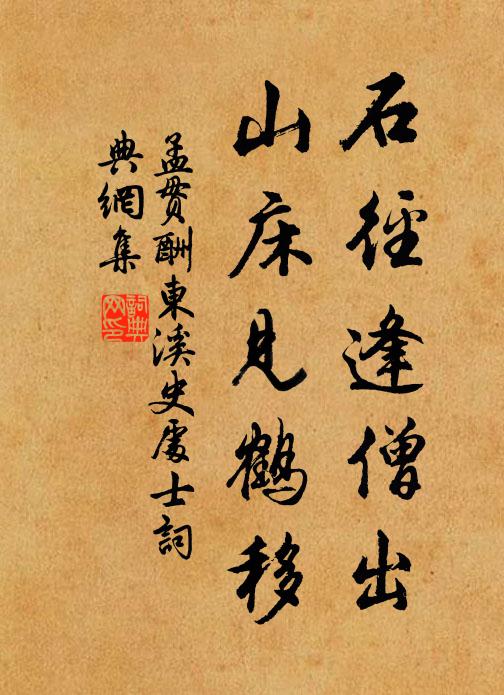 石徑逢僧出
山床見鶴移
孟貫酬東溪史處士詞
典網集
詞典
网印